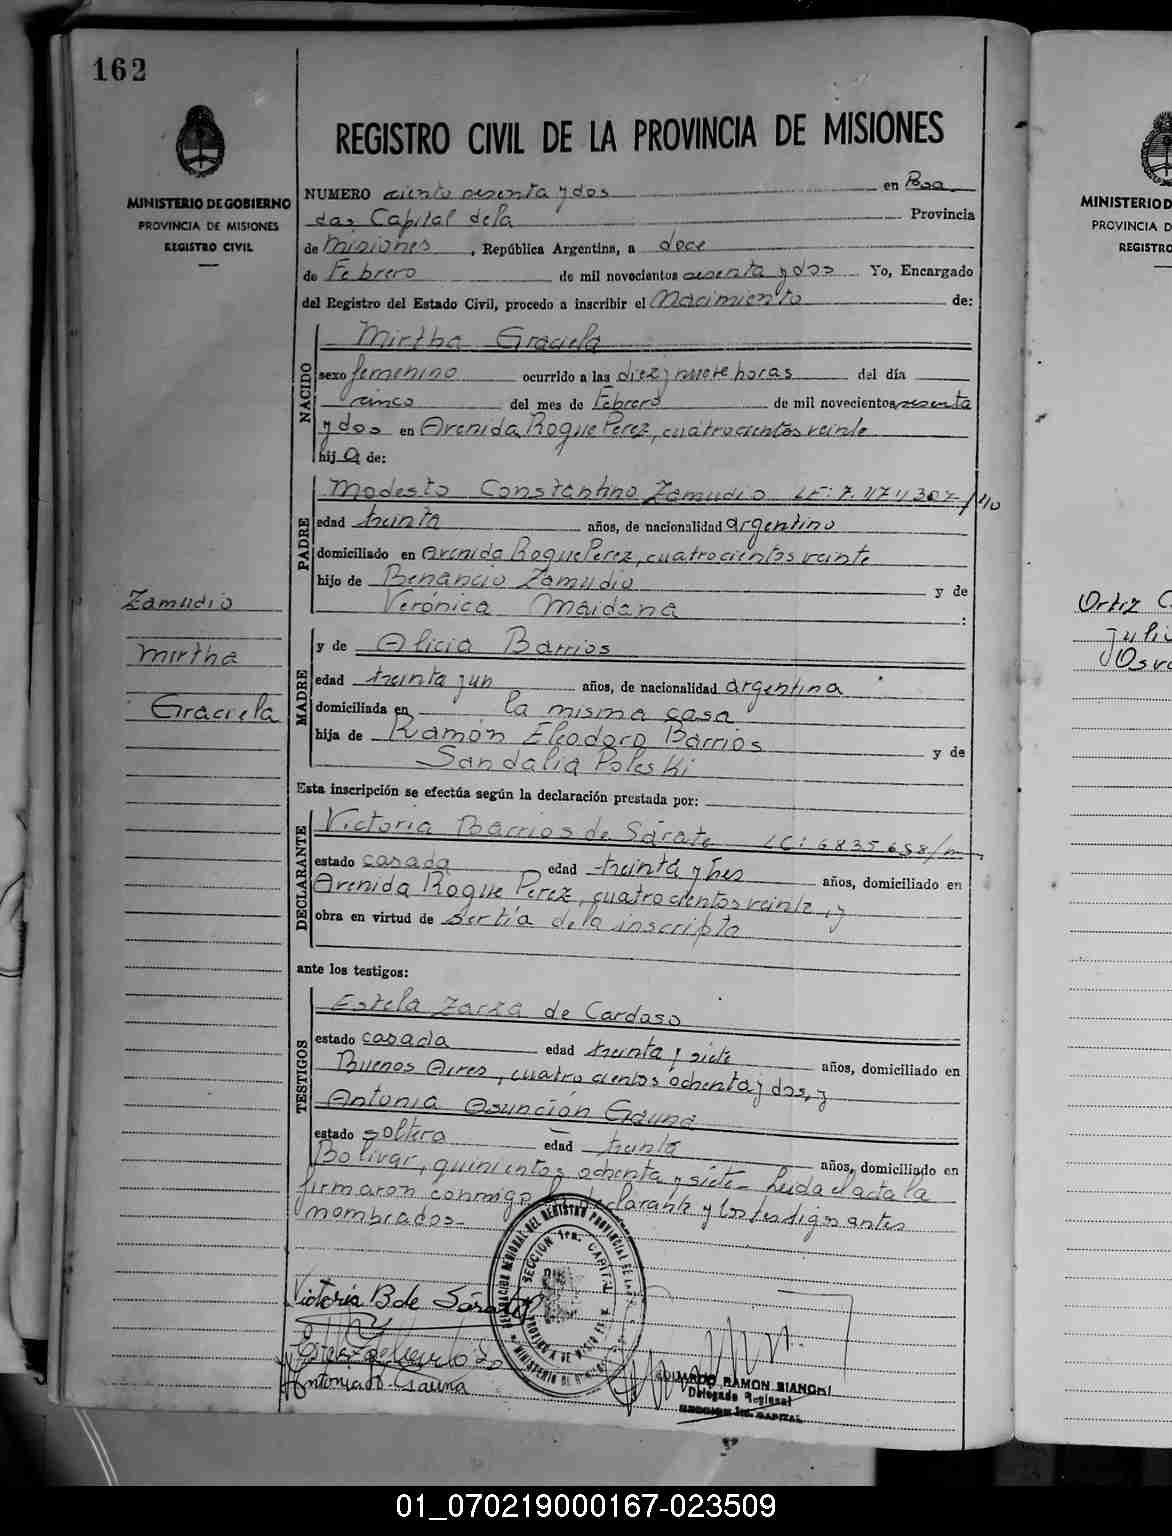 162
REGISTRO CIVIL DE LA PROVINCIA DE MISIONES
MINISTERIO DE GOBIERNO
PROVINCIA DE MISIONES
REGISTRO CIVIL
NUMERO ciento sesenta y dos en Posa
das Capital de la Provincia
de Misiones, República Argentina, a doce
de Febrero de mil novecientos sesenta y dos Yo, Encargado
del Registro del Estado Civil, procedo a inscribir el Nacimiento de:
NACIDO
Mirtha Graciela
sexo femenino ocurrido a las diez y nueve horas del día
cinco del mes de Febrero de mil novecientos sesenta
y dos en Avenida Roque Perez, cuatrocientos veinte
hija de:
PADRE
Modesto Constantino Zamudio
edad treinta años, de nacionalidad argentino
domiciliado en Avenida Roque Perez, cuatrocientos veinte
hijo de Benancio Zamudio y de
Verónica Maidana :
Zamudio
Mirtha
Graciela
MADRE
y de Alicia Barrios
edad treinta y un años, de nacionalidad argentina
domiciliada en la misma casa
hija de Ramón Eleodoro Barrios y de
Sandalia Poleski
Esta inscripción se efectúa según la declaración prestada por:
DECLARANTE
Victoria Barrios de Sárate
estado casada edad treinta y tres años, domiciliado en
Avenida Roque Perez, cuatrocientos veinte, y
obra en virtud de ser tía de la inscripta
ante los testigos:
TESTIGOS
Estela Zarza de Cardoso
estado casada edad treinta y siete años, domiciliado en
Buenos Aires, cuatrocientos ochenta y dos, y
Antonia Asunción Gauna
estado soltera edad treinta años, domiciliado en
Bolivar, quinientos ochenta y siete - Leida el acta la
firmaron conmigo la declarante y los testigos antes
nombrados-
Victoria B de Sárate
Antonia A. Gauna
SECCION 1ra. CAPITAL
EDUARDO RAMON BIANCHI
Delegado Regional
SECCION 1ra. CAPITAL
MINISTERIO D
PROVINCIA D
REGISTRO
Ortiz
01_070219000167-023509